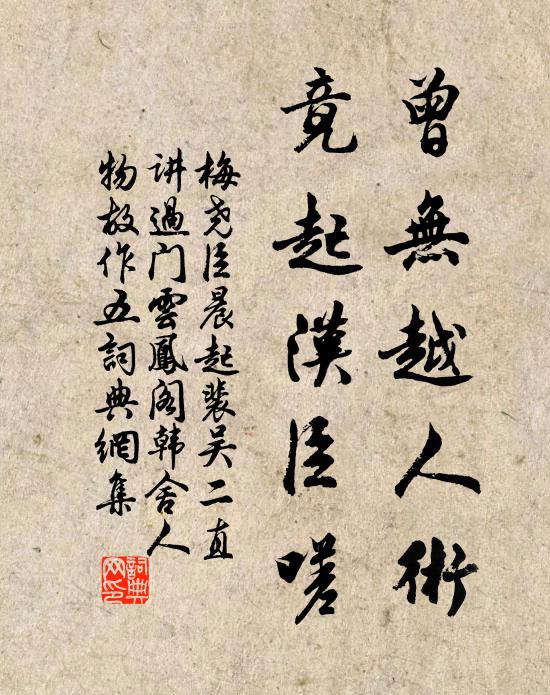 曾無越人術
竟起漢臣嗟
梅堯臣晨起裴吴二直
讲過门雲鳳阁韩舍人
物故作五詞典網集
詞典網印